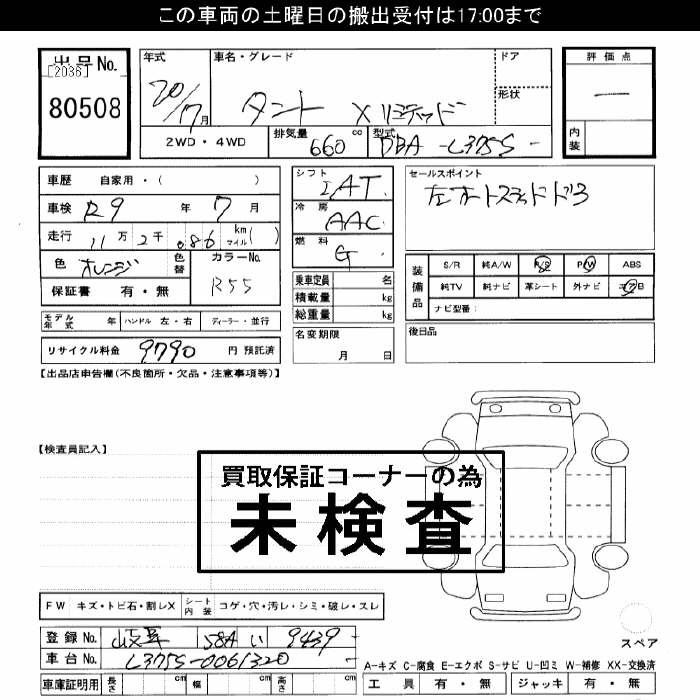 この車両の土曜日の搬出受付は17:00まで
出品No.
[2036]
80508
年式
20/7月
車名・グレード
タント Xリミテッド
ドア
形状
評価点
―
内装
2WD・4WD
排気量
660 cc
型式
DBA-L375S-
車歴 自家用・( )
車検 R9 年 7 月
走行 11万 2千 086 km マイル( )
色 オレンジ 色替
カラーNo.
R55
保証書 有・無
シフト
IAT
冷房
AAC
燃料
G
セールスポイント
左オートスライドドア
装備品
S/R 純A/W P/S P/W ABS
純TV 純ナビ 革シート 外ナビ エアB
ナビ型番:
乗車定員 名
積載量 kg
総重量 kg
モデル年式 年 ハンドル 左・右 ディーラー・並行
名変期限
月 日
後日品
リサイクル料金 9790 円 預託済
【出品店申告欄(不良箇所・欠品・注意事項等)】
【検査員記入】
買取保証コーナーの為
未検査
FW キズ・トビ石・割レX シート内装 コゲ・穴・汚レ・シミ・破レ・スレ
登録No. 岐阜 58A い 9439-
車台No. L375S-0061320
スペア
A-キズ C-腐食 E-エクボ S-サビ U-凹ミ W-補修 XX-交換済
車庫証明用 長さ cm 幅 cm 高さ cm
工具 有・無 ジャッキ 有・無